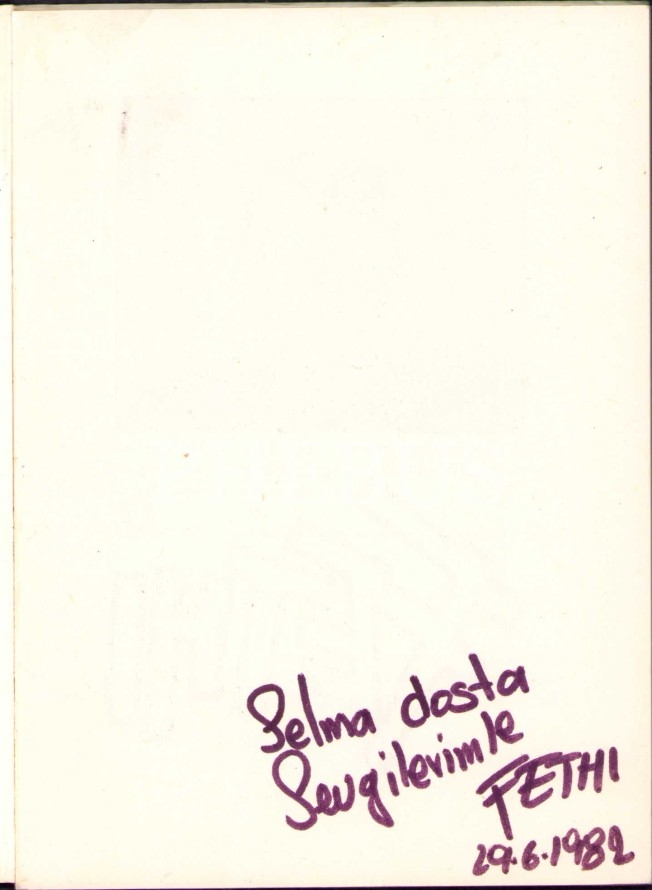 Selma dosta
Sevgilerimle
FETHI
29.6.1982